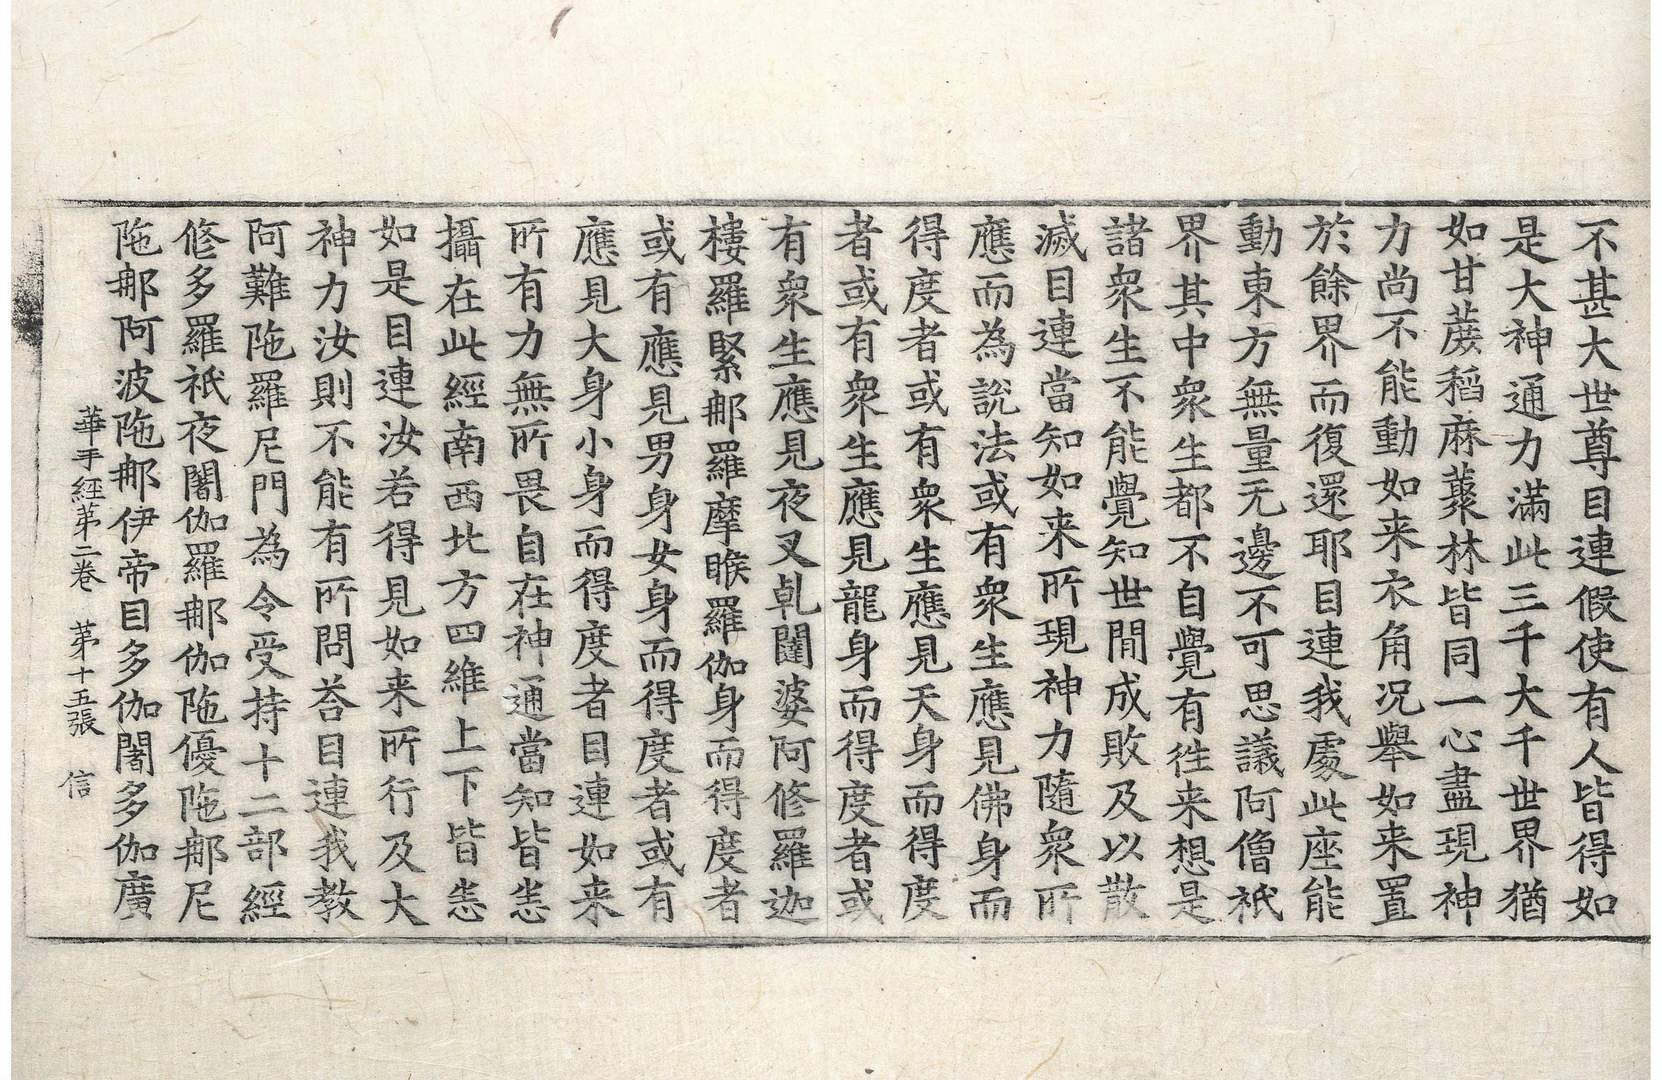 不甚大世尊目連假使有人皆得如
是大神通力滿此三千大千世界猶
如甘蔗稻麻藂林皆同一心盡現神
力尚不能動如来衣角况舉如来置
於餘界而復還耶目連我處此座能
動東方無量无邊不可思議阿僧祇
界其中衆生都不自覺有徃来想是
諸衆生不能覺知世間成敗及以散
滅目連當知如来所現神力隨衆所
應而為說法或有衆生應見佛身而
得度者或有衆生應見天身而得度
者或有衆生應見龍身而得度者或
有衆生應見夜叉乹闥婆阿修羅迦
樓羅緊那羅摩睺羅伽身而得度者
或有應見男身女身而得度者或有
應見大身小身而得度者目連如来
所有力無所畏自在神通當知皆恙
攝在此經南西北方四維上下皆恙
如是目連汝若得見如来所行及大
神力汝則不能有所問荅目連我教
阿難陁羅尼門為令受持十二部經
修多羅祇夜闍伽羅那伽陁優陁那尼
陁那阿波陁那伊帝目多伽闍多伽廣
華手經苐二卷　苐十五張　信